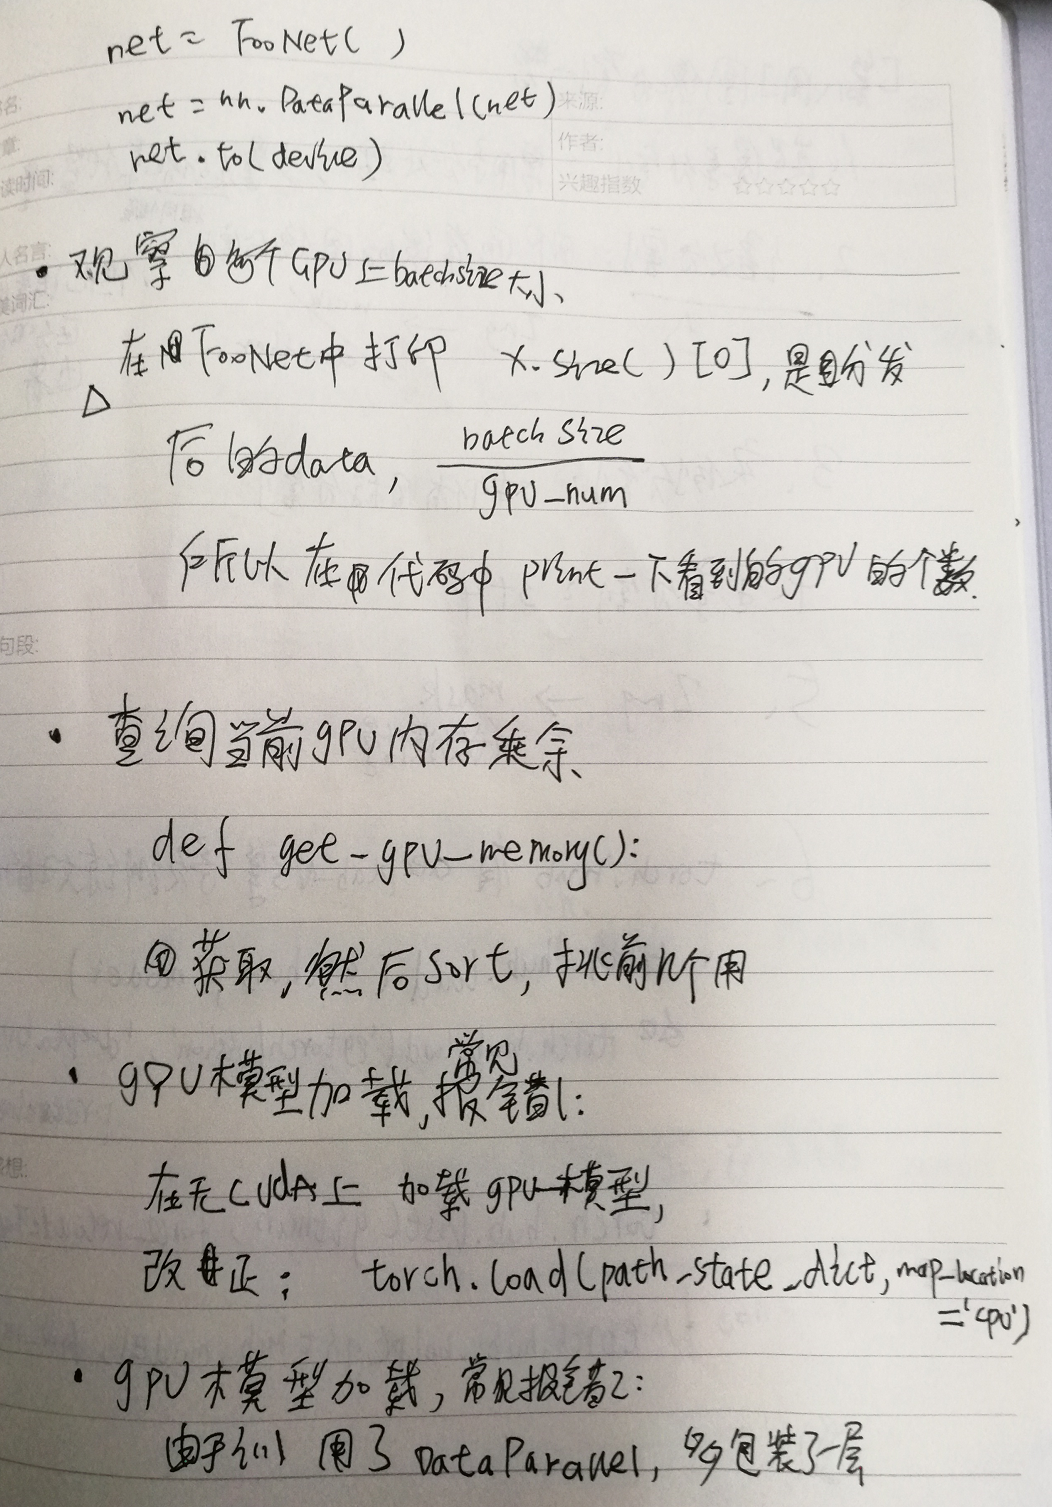 net = FooNet( )
net = nn.DataParallel(net)
net.to(device)
来源:
作者:
读时间:
兴趣指数 ☆☆☆☆☆
人名言:
美词汇:
• 观察每个GPU上batchsize大小、
在FooNet中打印 x.size( )[0], 是分发
△
后的data, batch size
gpu_num
所以在代码中 print一下看到的gpu的个数.
句段:
• 查询当前gpu内存乘余、
def get-gpu-memory():
获取, 然后sort, 挑前n个用
常见
• gpu模型加载, 报错1:
想:
在无cuda上 加载gpu模型,
改正: torch.load(path_state_dict, map_location
='cpu')
• gpu模型加载, 常见报错2:
由于训 用了 DataParallel, 多包装了一层